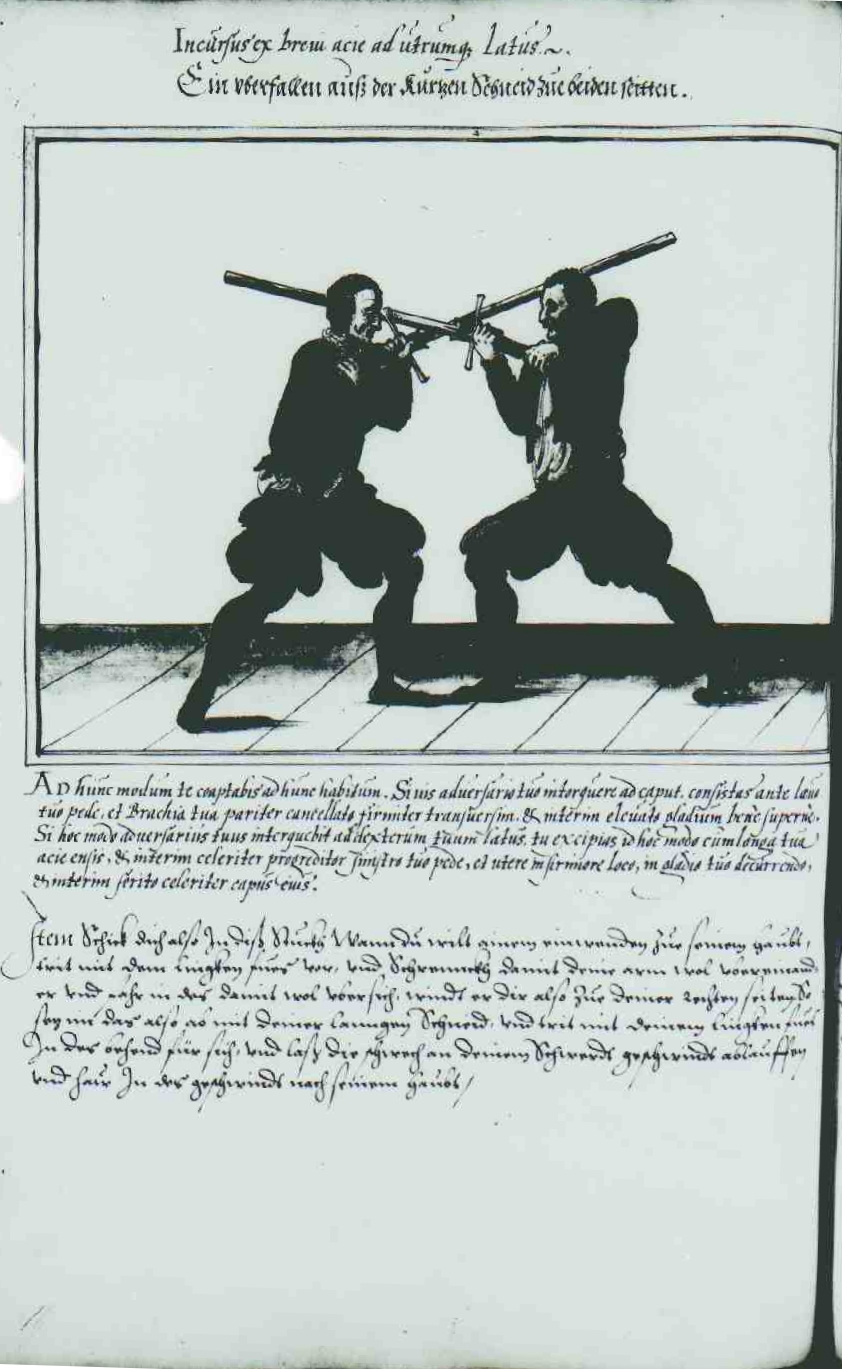 Incursus ex breui acie ad utrumq; latus ~.
Ein vberfallen auß der Kurtzen Schneid zue beiden seitten.
AD hunc modum te coaptabis ad hunc habitum. Si uis aduersario tuo intorquere ad caput, consistas ante læuo
tuo pede, et Brachia tua pariter cancellato firmiter transuersim, & interim eleuato gladium bene superne.
Si hoc modo aduersarius tuus intorquebit ad dexterum tuum latus, tu excipias id hoc modo cum longa tua
acie ensis, & interim celeriter progreditor sinistro tuo pede, et utere infirmiore loco, in gladio tuo decurrendo,
& interim ferito celeriter caput eius.
Item Schick dich also In diß Stuckh Wann du wilt ainem einwenden zue seinem haubt,
trit mit dem lingken fues vor, vnd Schrennckh damit deine arm wol vbereinand
er vnd fahr in des damit wol vbersich, windt er dir also zue deiner rechten seiten So
sez im das also ab mit deiner lanngen Schneid, vnd trit mit deinem lingken fues
In des behend für sich, vnd laß die schwech an deinem Schwerdt geschwindt ablauffen
vnd haw In des geschwindt nach seinem haubt,